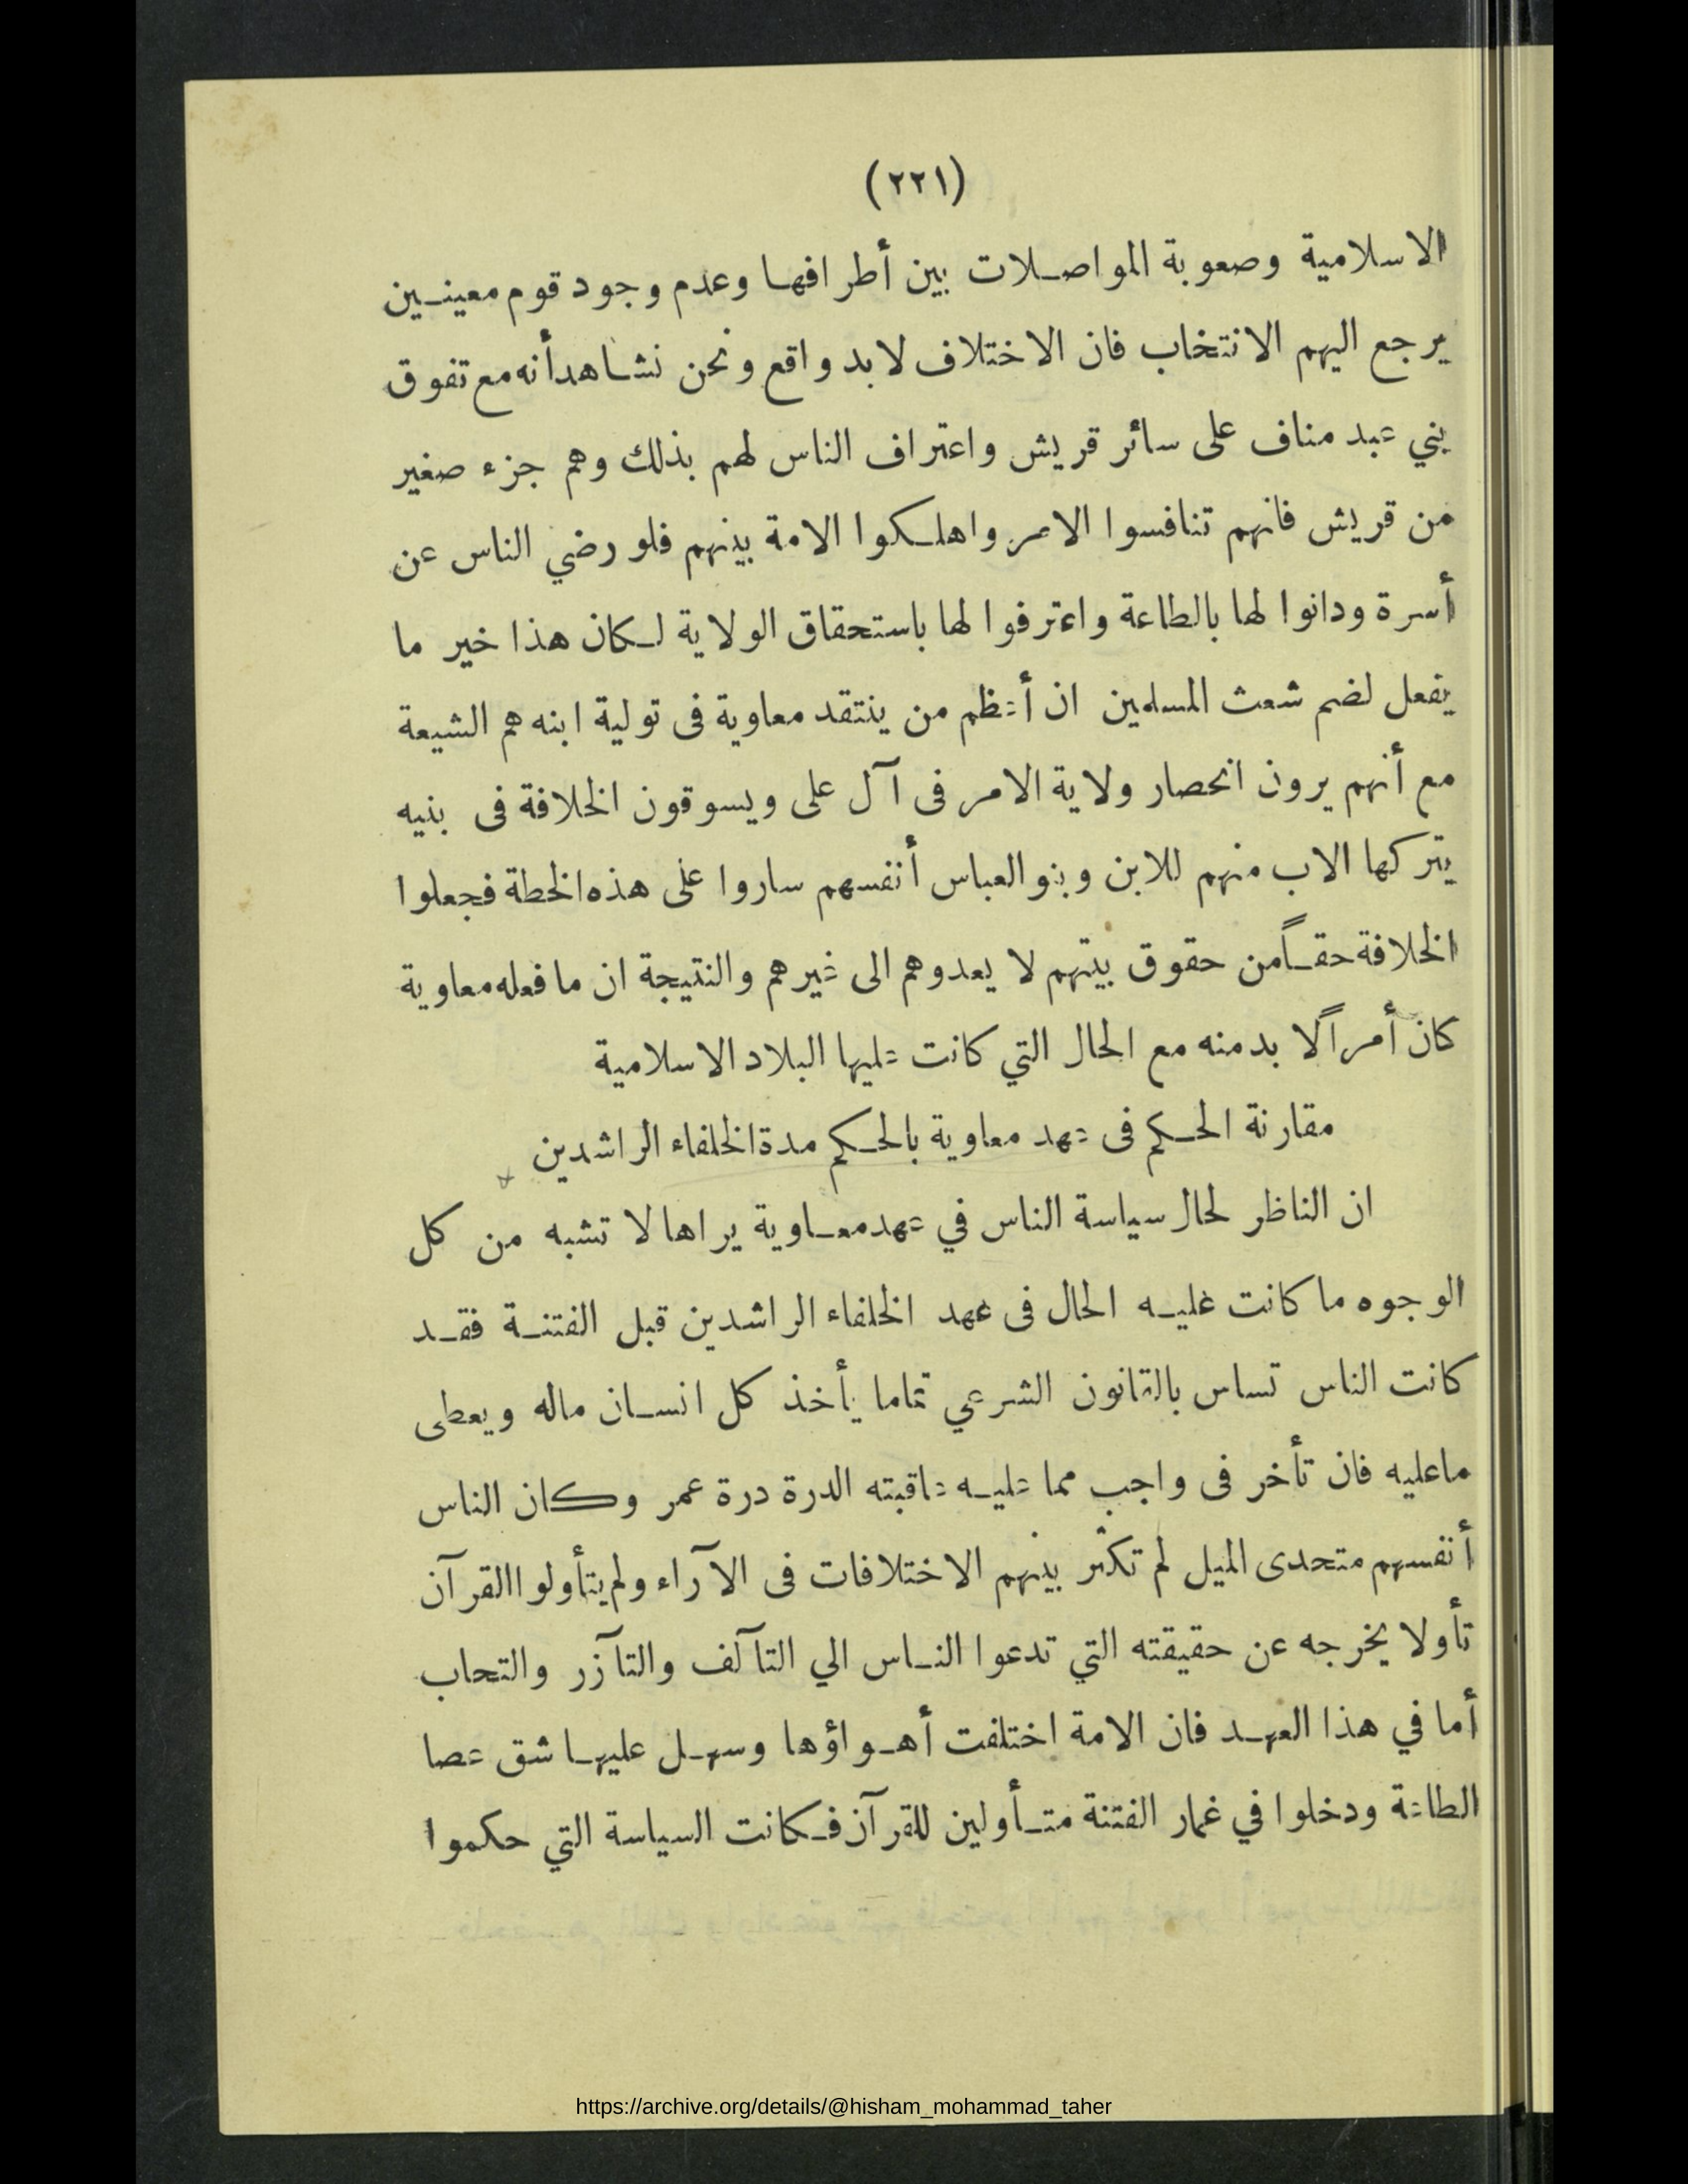 (٢٢١)
الاسلامية وصعوبة المواصلات بين أطرافها وعدم وجود قوم معينين
يرجع اليهم الانتخاب فان الاختلاف لا بد واقع ونحن نشاهد أنه مع تفوق
بني عبد مناف على سائر قريش واعتراف الناس لهم بذلك وهم جزء صغير
من قريش فانهم تنافسوا الامر واهلكوا الامة بينهم فلو رضي الناس عن
أسرة ودانوا لها بالطاعة واعترفوا لها باستحقاق الولاية لكان هذا خير ما
يفعل لضم شعث المسلمين ان أعظم من ينتقد معاوية فى تولية ابنه هم الشيعة
مع أنهم يرون انحصار ولاية الامر فى آل على ويسوقون الخلافة فى بنيه
يتركها الاب منهم للابن وبنو العباس أنفسهم ساروا على هذه الخطة فجعلوا
الخلافة حقاً من حقوق بيتهم لا يعدوهم الى غيرهم والنتيجة ان ما فعله معاوية
كان أمراً لا بد منه مع الحال التي كانت عليها البلاد الاسلامية
مقارنة الحكم فى عهد معاوية بالحكم مدة الخلفاء الراشدين
ان الناظر لحال سياسة الناس في عهد معاوية يراها لا تشبه من كل
الوجوه ما كانت غليه الحال فى عهد الخلفاء الراشدين قبل الفتنة فقد
كانت الناس تساس بالقانون الشرعي تماما يأخذ كل انسان ماله ويعطى
ماعليه فان تأخر فى واجب مما عليه عاقبته الدرة درة عمر وكان الناس
أنفسهم متحدى الميل لم تكثر بينهم الاختلافات فى الآراء ولم يتأولوا القرآن
تأولا يخرجه عن حقيقته التي تدعوا الناس الي التآلف والتآزر والتحاب
أما في هذا العهد فان الامة اختلفت أهواؤها وسهل عليها شق عصا
الطاعة ودخلوا في غمار الفتنة متأولين للقرآن فكانت السياسة التي حكموا
https://archive.org/details/@hisham_mohammad_taher